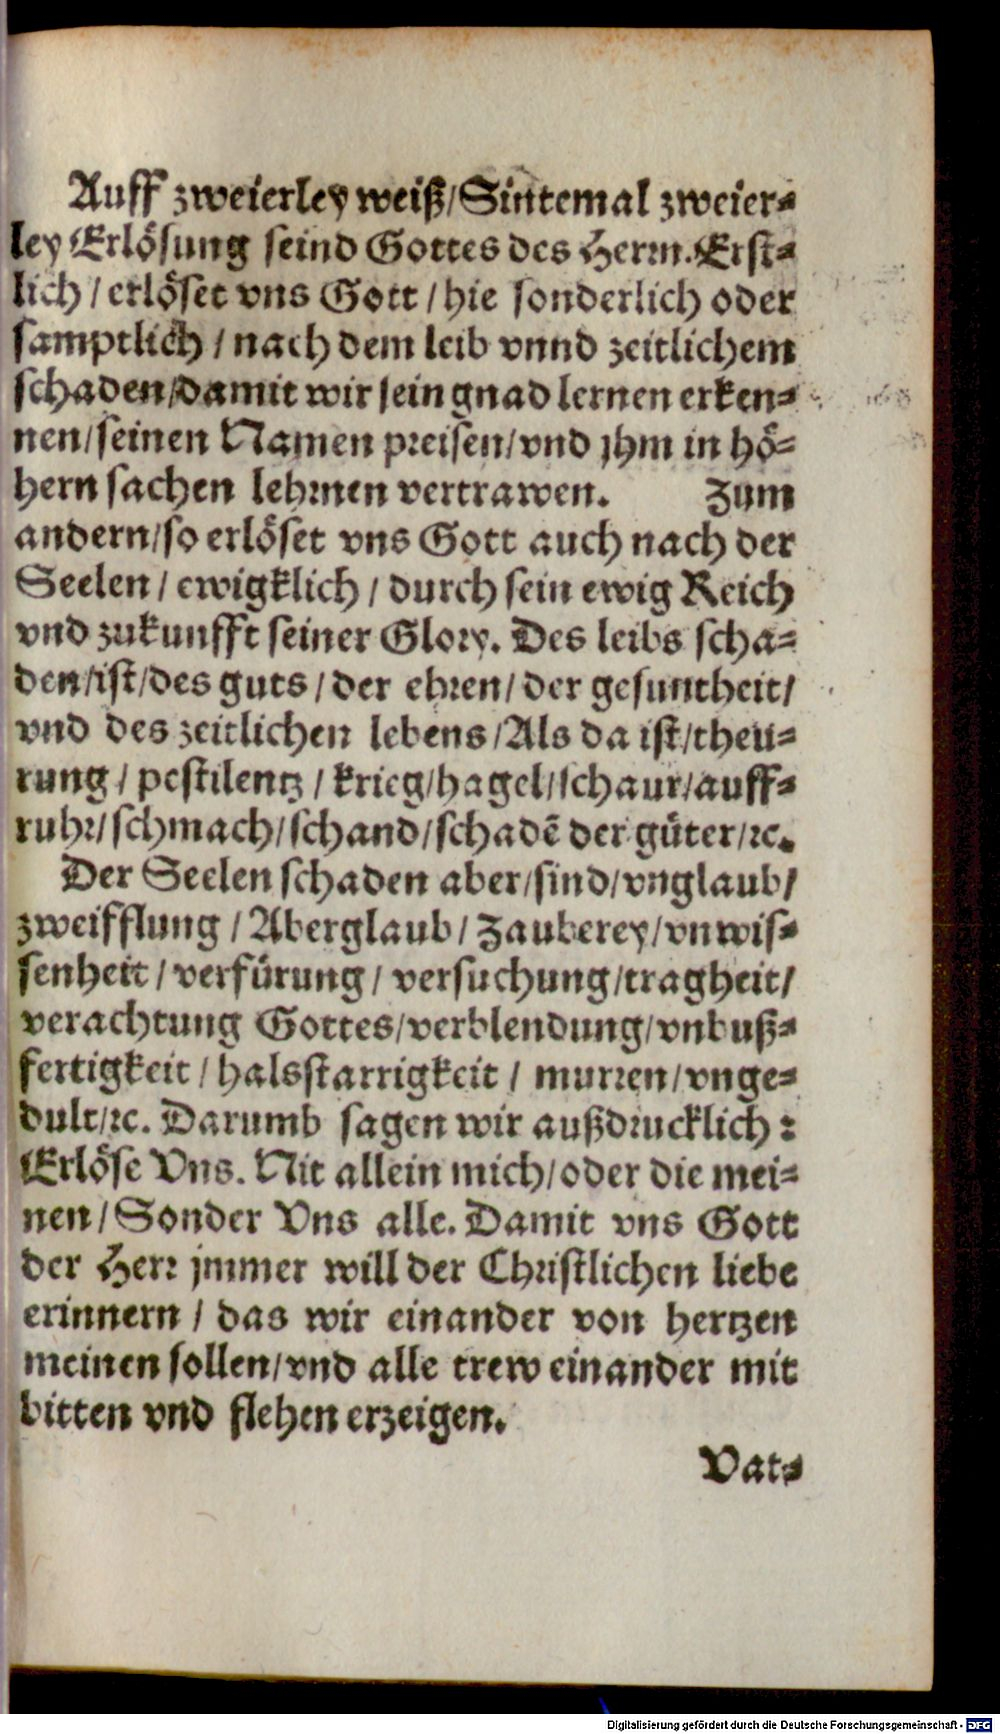 Auff zweierley weiß/Sintemal zweier-
ley Erlösung seind Gottes des Herrn. Erst-
lich / erlöset vns Gott / hie sonderlich oder
samptlich / nach dem leib vnnd zeitlichem
schaden/damit wir sein gnad lernen erken-
nen/seinen Namen preisen/vnd jhm in hö-
hern sachen lehrnen vertrawen. Zum
andern/so erlöset vns Gott auch nach der
Seelen / ewigklich / durch sein ewig Reich
vnd zukunfft seiner Glory. Des leibs scha-
den/ist/des guts / der ehren/ der gesuntheit/
vnd des zeitlichen lebens /Als da ist/theu-
rung / pestilentz / krieg/hagel/schaur/auff-
ruhr/schmach/schand/schadē der güter/ꝛc.
Der Seelen schaden aber/sind/vnglaub/
zweifflung / Aberglaub / Zauberey/vnwis-
senheit / verfürung / versuchung/tragheit/
verachtung Gottes/verblendung/vnbuß-
fertigkeit / halsstarrigkeit / murren/vnge-
dult/ꝛc. Darumb sagen wir außdrucklich :
Erlöse Vns. Nit allein mich/oder die mei-
nen / Sonder Vns alle. Damit vns Gott
der Herr jmmer will der Christlichen liebe
erinnern / das wir einander von hertzen
meinen sollen/vnd alle trew einander mit
bitten vnd flehen erzeigen.
Vat-
Digitalisierung gefördert durch die Deutsche Forschungsgemeinschaft - DFG